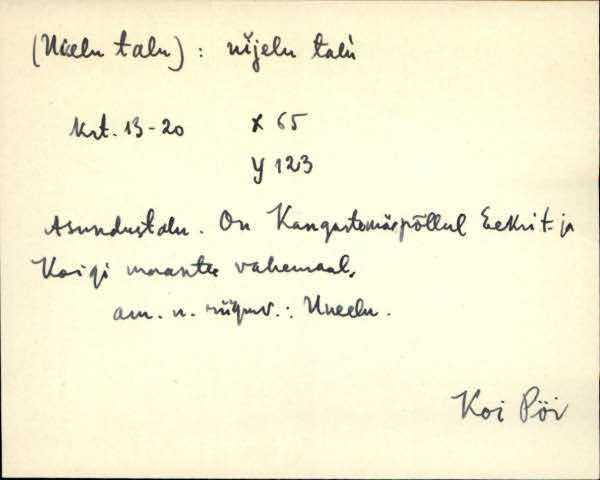 (Uueelu talu) : ūjelu talu
Krt. 13-20 X 65
Y 123
Asundustalu. On Kangastemäepõllul Eekrit- ja
Koigi maantee vahemaal.
am. n. riigirav.: Uueelu.
Koi Pöi